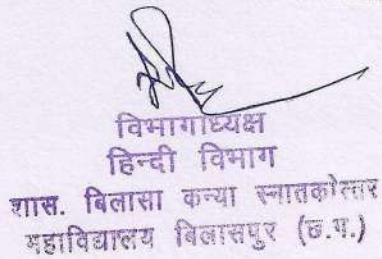 विभागाध्यक्ष
हिन्दी विभाग
शास. बिलासा कन्या स्नातकोत्तर
महाविद्यालय बिलासपुर (छ.ग.)